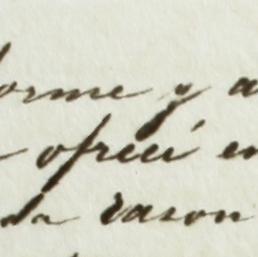 forme y a
ofreci en
da rason